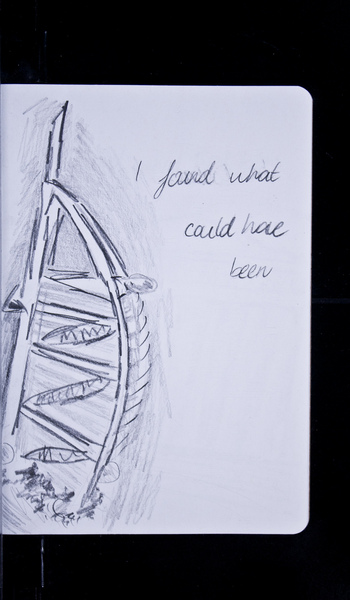 I found what
could have
been